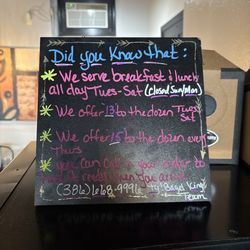 Did you Know that:
We serve breakfast & lunch
all day Tues-Sat (Closed Sun/Mon)
We offer 13 to the dozen Tues
Sat
We offer 15 to the dozen every
Thurs
you can call in your order to
have it ready when you arrive
(386) 668-9996 Ty! Bagel King
Team